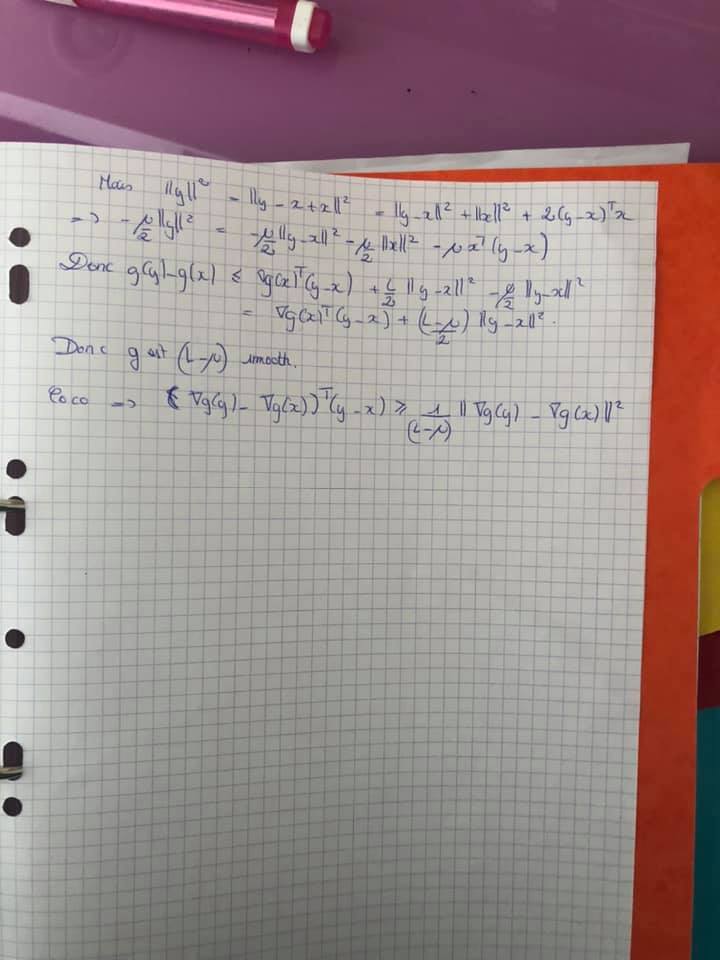 Mais ||y||² = ||y - x + x||² = ||y - x||² + ||x||² + 2(y - x)ᵀx
=> -μ/2 ||y||² = -μ/2 ||y - x||² - μ/2 ||x||² - μ xᵀ(y - x)
Donc g(y) - g(x) ≤ ∇g(x)ᵀ(y - x) + L/2 ||y - x||² - μ/2 ||y - x||²
= ∇g(x)ᵀ(y - x) + (L-μ)/2 ||y - x||².
Donc g est (L-μ) smooth.
Coco => (∇g(y) - ∇g(x))ᵀ(y - x) ≥ 1/(L-μ) ||∇g(y) - ∇g(x)||²